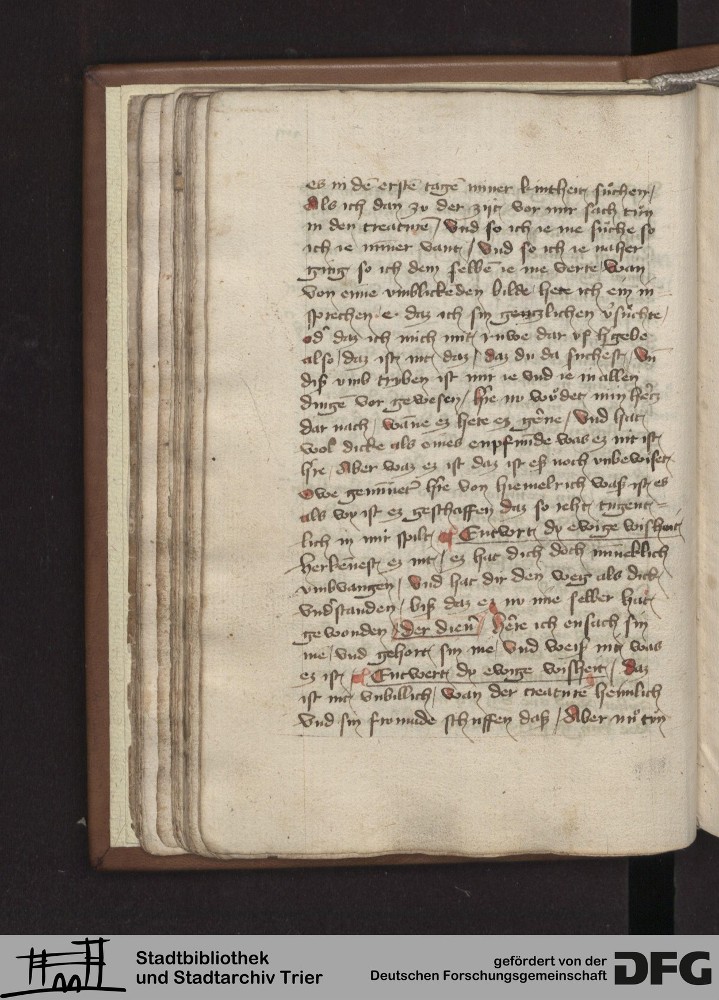 es in dē erstē tagē miner kintheit sůchen /
Als ich dan zu der zijt vor mir sach tůn
in den creaturē / Vnd so ich ie me sůche so
ich ie minner vant / Vnd so ich ie naher
ging so ich dem selbē ie me verre Wan
von eime vmblickeden bilde hete ich ein in
sprechen e daz ich sin gentzlichen v̓sůchte /
od̓ daz ich mich mit ruwe dar vf h̓gebe
also / daz ist nit daz / daz du da suchest / Vn̄
diß vmb triben ist mir ie vnd ie in allen
dingē vor gewesen / h̓re nv wůdet min h̓tz
dar nach / wāne ez hete ez gērne / Vnd hat
wol dicke als eines enpfunde was ez nit ist
h̓re Aber waz ez ist daz ist eß noch vnbewiset
Owe geminter h̓re von hiemelrich waß ist es
als wy ist ez geschaffen daz so reht tugent=
lich in mir spilt Entwort dy ewige wisheit
Herkēnest ez nit / ez hat dich doch minneklich
vmbvangen / Vnd hat dir den weg als dick
vnd̓standen / biß daz ez nv me selber hat
gewonden der dien̓ h̓re ich ensach sin
nie / vnd gehort sin nie / vnd weiß nit was
ez ist Entwert dy ewige wisheit / daz
ist nit vnbillich / wan der creature heimlich
vnd sin fromude schuffen daß / Aber nů tůn
Stadtbibliothek
und Stadtarchiv Trier
gefördert von der
Deutschen Forschungsgemeinschaft
DFG